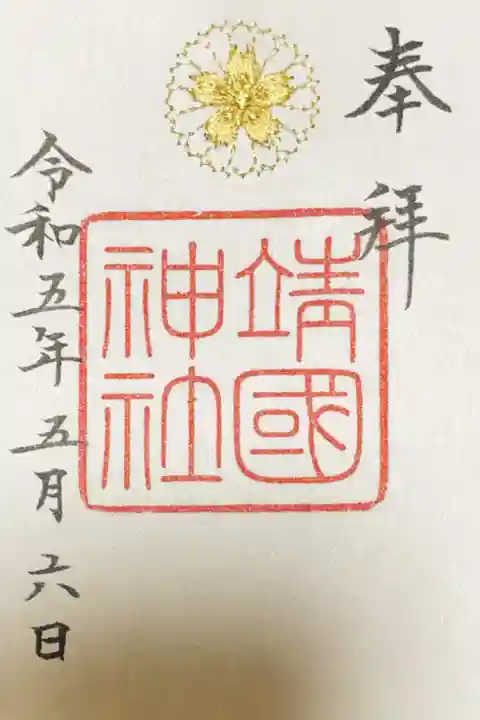 奉拜
靖國
神社
令和五年五月六日